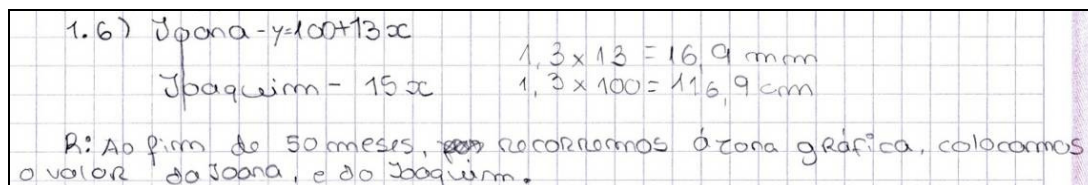 1.6) Joana - y=100+13x
1,3 x 13 = 16,9 mm
Joaquim - 15x
1,3 x 100 = 116,9 cm
R: Ao fim de 50 meses, recorremos á zona gráfica, colocamos
o valor da Joana, e do Joaquim.